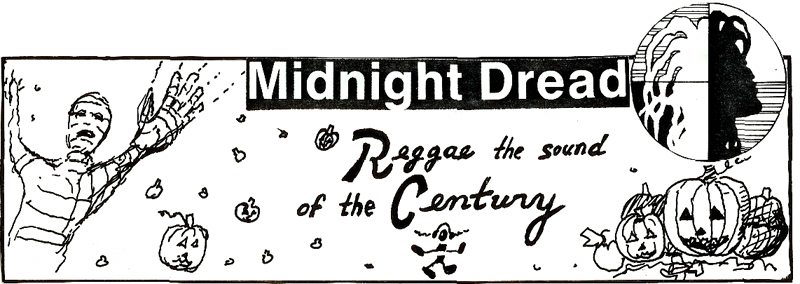 Midnight Dread
Reggae the sound
of the Century